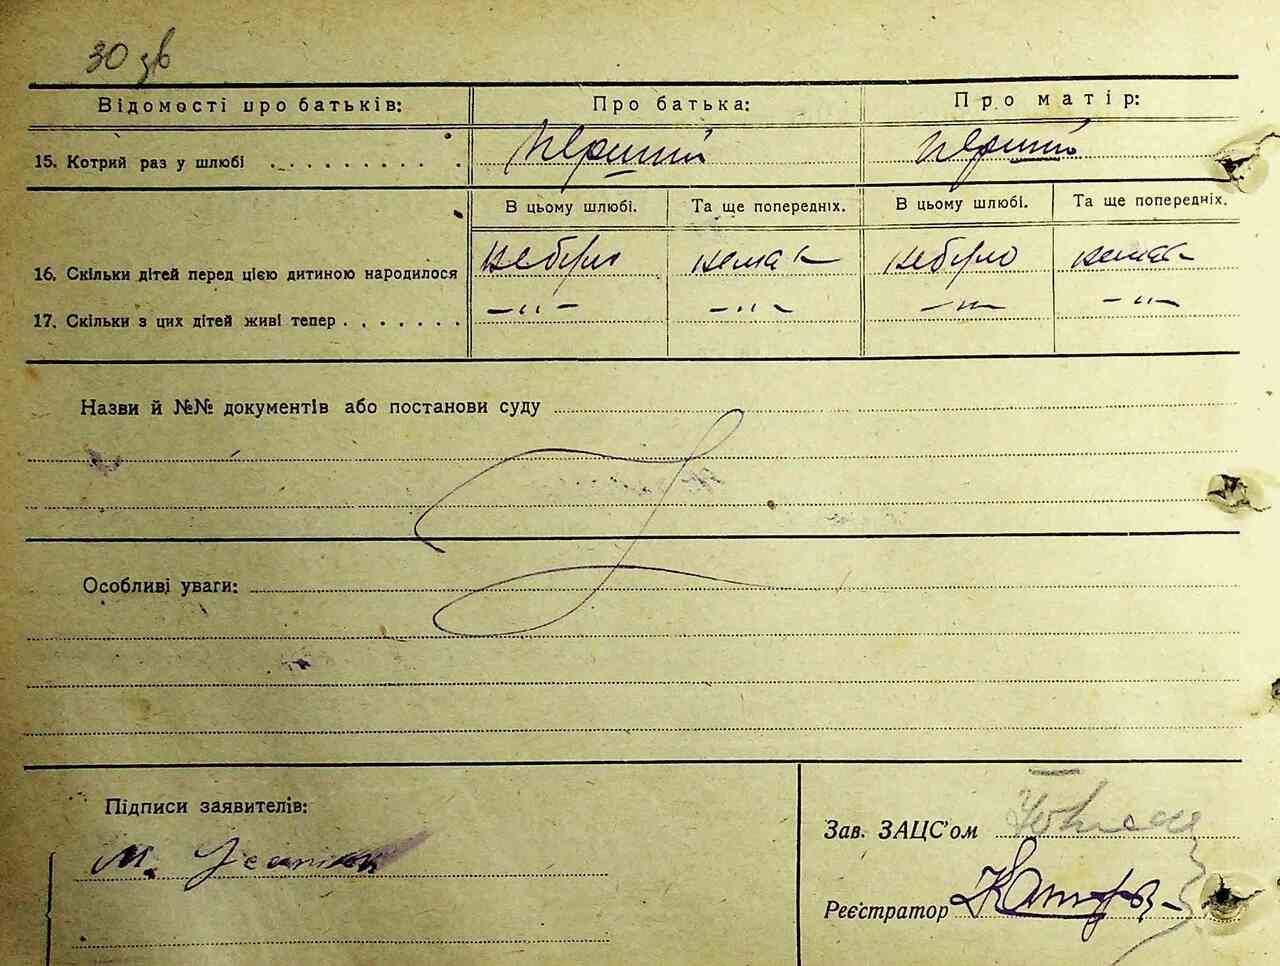 30 зв
Відомості про батьків: Про батька: Про матір:
15. Котрий раз у шлюбі . . . . . . . . . . перший перший
В цьому шлюбі. Та ще попередніх. В цьому шлюбі. Та ще попередніх.
16. Скільки дітей перед цією дитиною народилося небуло немає небуло немає
17. Скільки з цих дітей живі тепер . . . . . . . -"- -"- -"- -"-
Назви й №№ документів або постанови суду
Особливі уваги:
Підписи заявителів:
М.
Зав. ЗАЦС'ом
Реєстратор